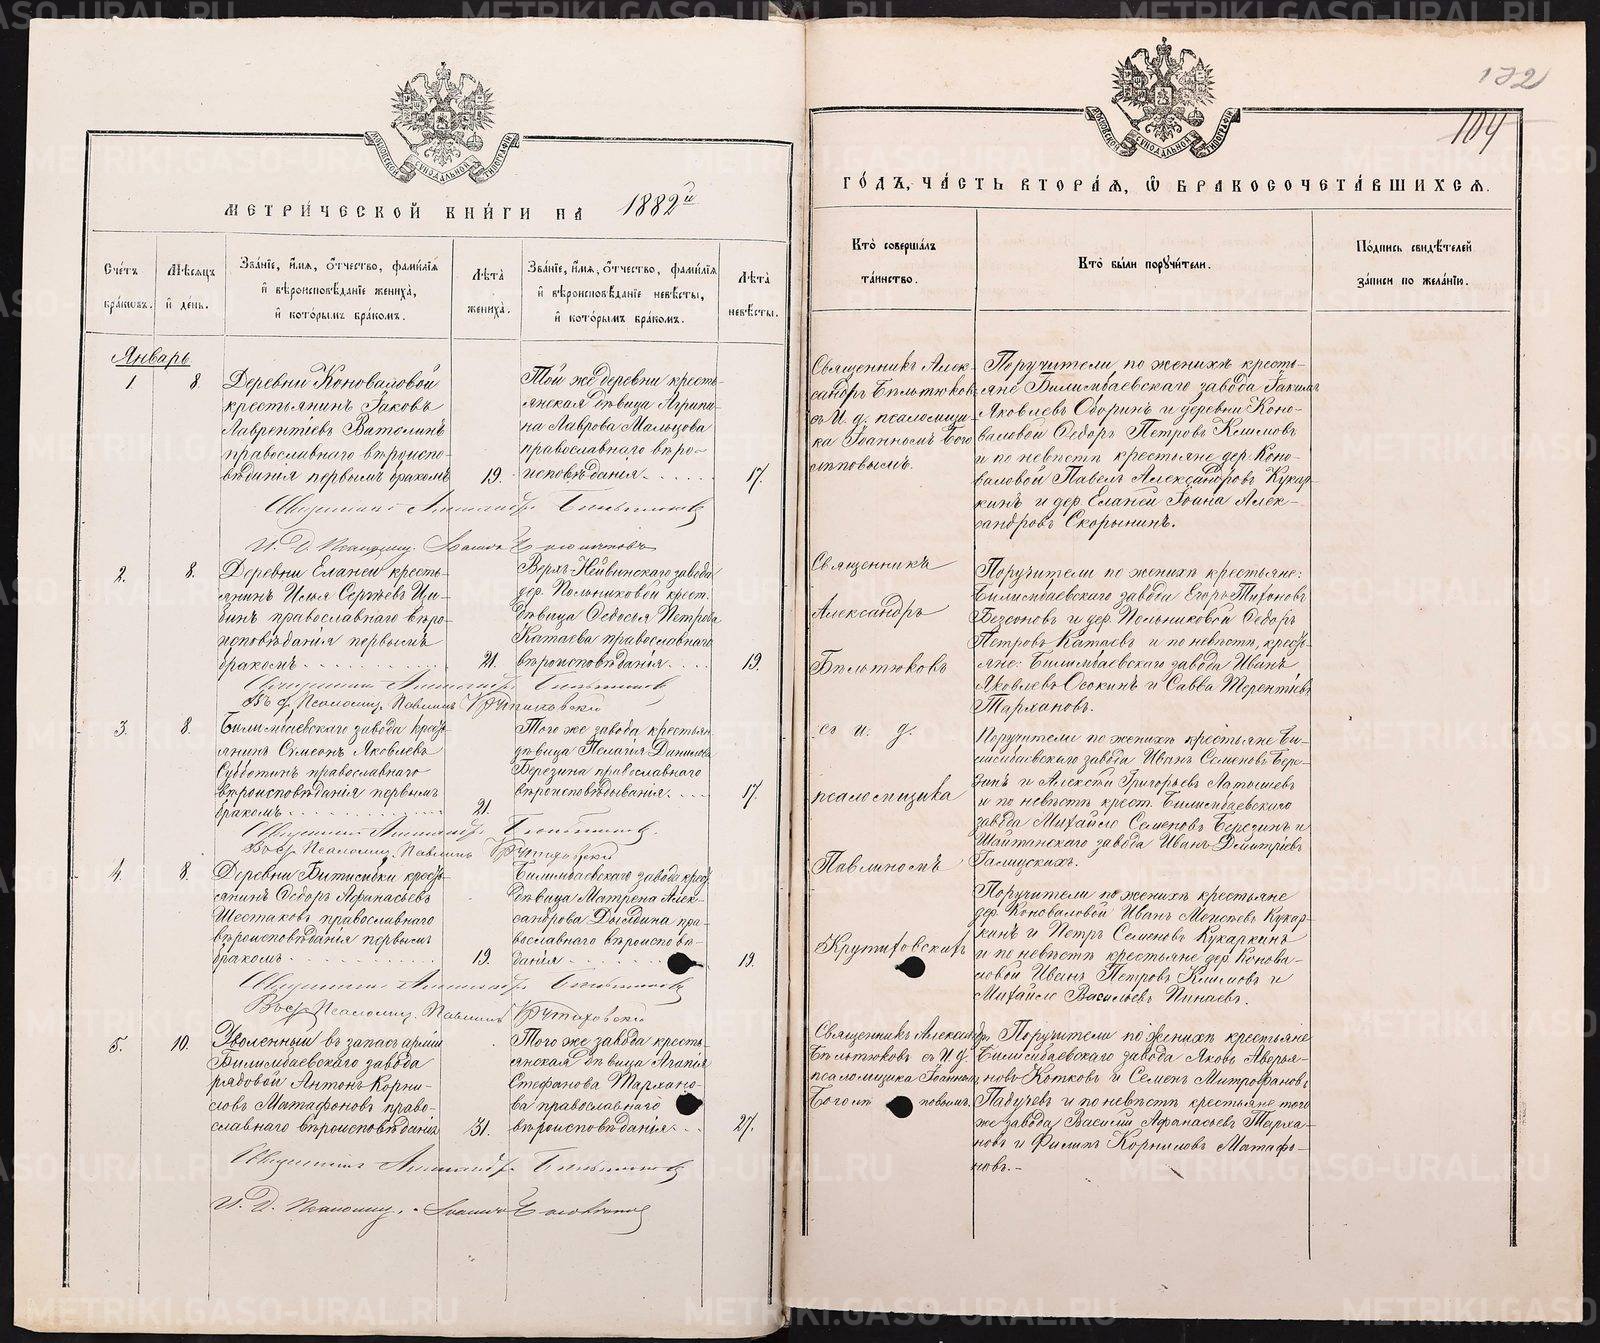 МЕТРИ́ЧЕСКОЙ КНИ́ГИ НА 1882й
Сче́тъ бра́ковъ.
Мѣ́сяцъ и҆ де́нь.
Зва́нїе, и҆́мѧ, ѻ҆́тчество, фами́лїѧ
и҆ вѣроисповѣ́данїе жениха̀,
и҆ кото́рымъ бра́комъ.
Лѣ́та жениха̀.
Зва́нїе, и҆́мѧ, ѻ҆́тчество, фами́лїѧ
и҆ вѣроисповѣ́данїе невѣ́сты,
и҆ кото́рымъ бра́комъ.
Лѣ́та невѣ́сты.
Январь
1
8.
Деревни Коноваловой
крестьянинъ Іаковъ
Лаврентіевъ Ватолинъ
православнаго вѣроиспо-
вѣданія первымъ бракомъ
19.
Той же деревни кресть-
янская дѣвица Агрипи-
на Лаврова Мальцова
православнаго вѣро-
исповѣданія
17.
Священникъ Александръ Бѣльтюковъ
И. Д. Псаломщ. Іоаннъ Боголѣповъ
2.
8.
Деревни Елансы кресть-
янинъ Илья Сергѣевъ Ци-
бинъ православнаго вѣро-
исповѣданія первымъ
бракомъ
21.
Верхъ-Нейвинскаго завода
дер. Польниковой крест.
дѣвица Ѳедосья Петрова
Катаева православнаго
вѣроисповѣданія
19.
Священникъ Александръ Бѣльтюковъ
Псаломщ. Павлинъ Крутиховскій
3.
8.
Билимбаевскаго завода кресть-
янинъ Симеонъ Яковлевъ
Субботинъ православнаго
вѣроисповѣданія первымъ
бракомъ
21.
Того же завода крестьян.
дѣвица Пелагія Данилова
Березина православнаго
вѣроисповѣдыванія
17.
Священникъ Александръ Бѣльтюковъ
Псаломщ. Павлинъ Крутиховскій
4.
8.
Деревни Битимки кресть-
янинъ Ѳедоръ Аѳанасьевъ
Шестаковъ православнаго
вѣроисповѣданія первымъ
бракомъ
19.
Билимбаевскаго завода крест.
дѣвица Матрена Алек-
сандрова Дылдина пра-
вославнаго вѣроисповѣ-
данія
19.
Священникъ Александръ Бѣльтюковъ
Псаломщ. Павлинъ Крутиховскій
5.
10.
Уволенный въ запасъ арміи
Билимбаевскаго завода
рядовой Антонъ Корни-
ловъ Матафоновъ право-
славнаго вѣроисповѣданія
31.
Того же завода кресть-
янская дѣвица Агапія
Стефанова Тархано-
ва православнаго
вѣроисповѣданія
27.
Священникъ Александръ Бѣльтюковъ
И. Д. Псаломщ. Іоаннъ Боголѣповъ
132
104
ГО́ДЪ, ЧА́СТЬ ВТОРА́Ѧ, Ѡ҆ БРАКОСОЧЕТА́ВШИХСѦ.
Кто̀ соверша́лъ
та́инство.
Кто̀ бы́ли порꙋчи́тели.
По́дпись свидѣ́телей
за́писи по жела́нїю.
Священникъ Алек-
сандръ Бѣльтюковъ
съ И. д. псаломщи-
ка Іоанномъ Бого-
лѣповымъ.
Поручители по женихѣ кресть-
яне Билимбаевскаго завода Іакимъ
Яковлевъ Оборинъ и деревни Коно-
валовой Ѳедоръ Петровъ Климовъ
и по невѣстѣ крестьяне дер. Коно-
валовой Павелъ Александровъ Кукар-
кинъ и дер. Елансы Іоанъ Алек-
сандровъ Скорынинъ.
Священникъ
Александръ
Бѣльтюковъ
съ и. д.
псаломщика
Павлиномъ
Крутиховскимъ
Поручители по женихѣ крестьяне:
Билимбаевскаго завода Егоръ Тихоновъ
Безсоновъ и дер. Польниковой Ѳедоръ
Петровъ Катаевъ и по невѣстѣ, кресть-
яне: Билимбаевскаго завода Иванъ
Яковлевъ Осокинъ и Савва Терентіевъ
Тархановъ.
Поручители по женихѣ крестьяне Би-
лимбаевскаго завода Иванъ Семеновъ Бере-
зинъ и Алексѣй Григорьевъ Латышевъ
и по невѣстѣ крест. Билимбаевскаго
завода Михайло Семеновъ Березинъ и
Шайтанскаго завода Иванъ Дмитріевъ
Галицкихъ.
Поручители по женихѣ крестьяне
дер. Коноваловой Иванъ Моисеевъ Кукар-
кинъ и Петръ Семеновъ Кукаркинъ
и по невѣстѣ крестьяне дер. Конова-
ловой Иванъ Петровъ Климовъ и
Михайло Васильевъ Пинаевъ.
Священникъ Александръ
Бѣльтюковъ съ И. д.
псаломщика Іоанномъ
Боголѣповымъ.
Поручители по женихѣ крестьяне
Билимбаевскаго завода Яковъ Аверья-
новъ Котковъ и Семенъ Митрофановъ
Пабучевъ и по невѣстѣ крестьяне того
же завода Василій Аѳанасьевъ Тарха-
новъ и Филипъ Корниловъ Матафо-
новъ.